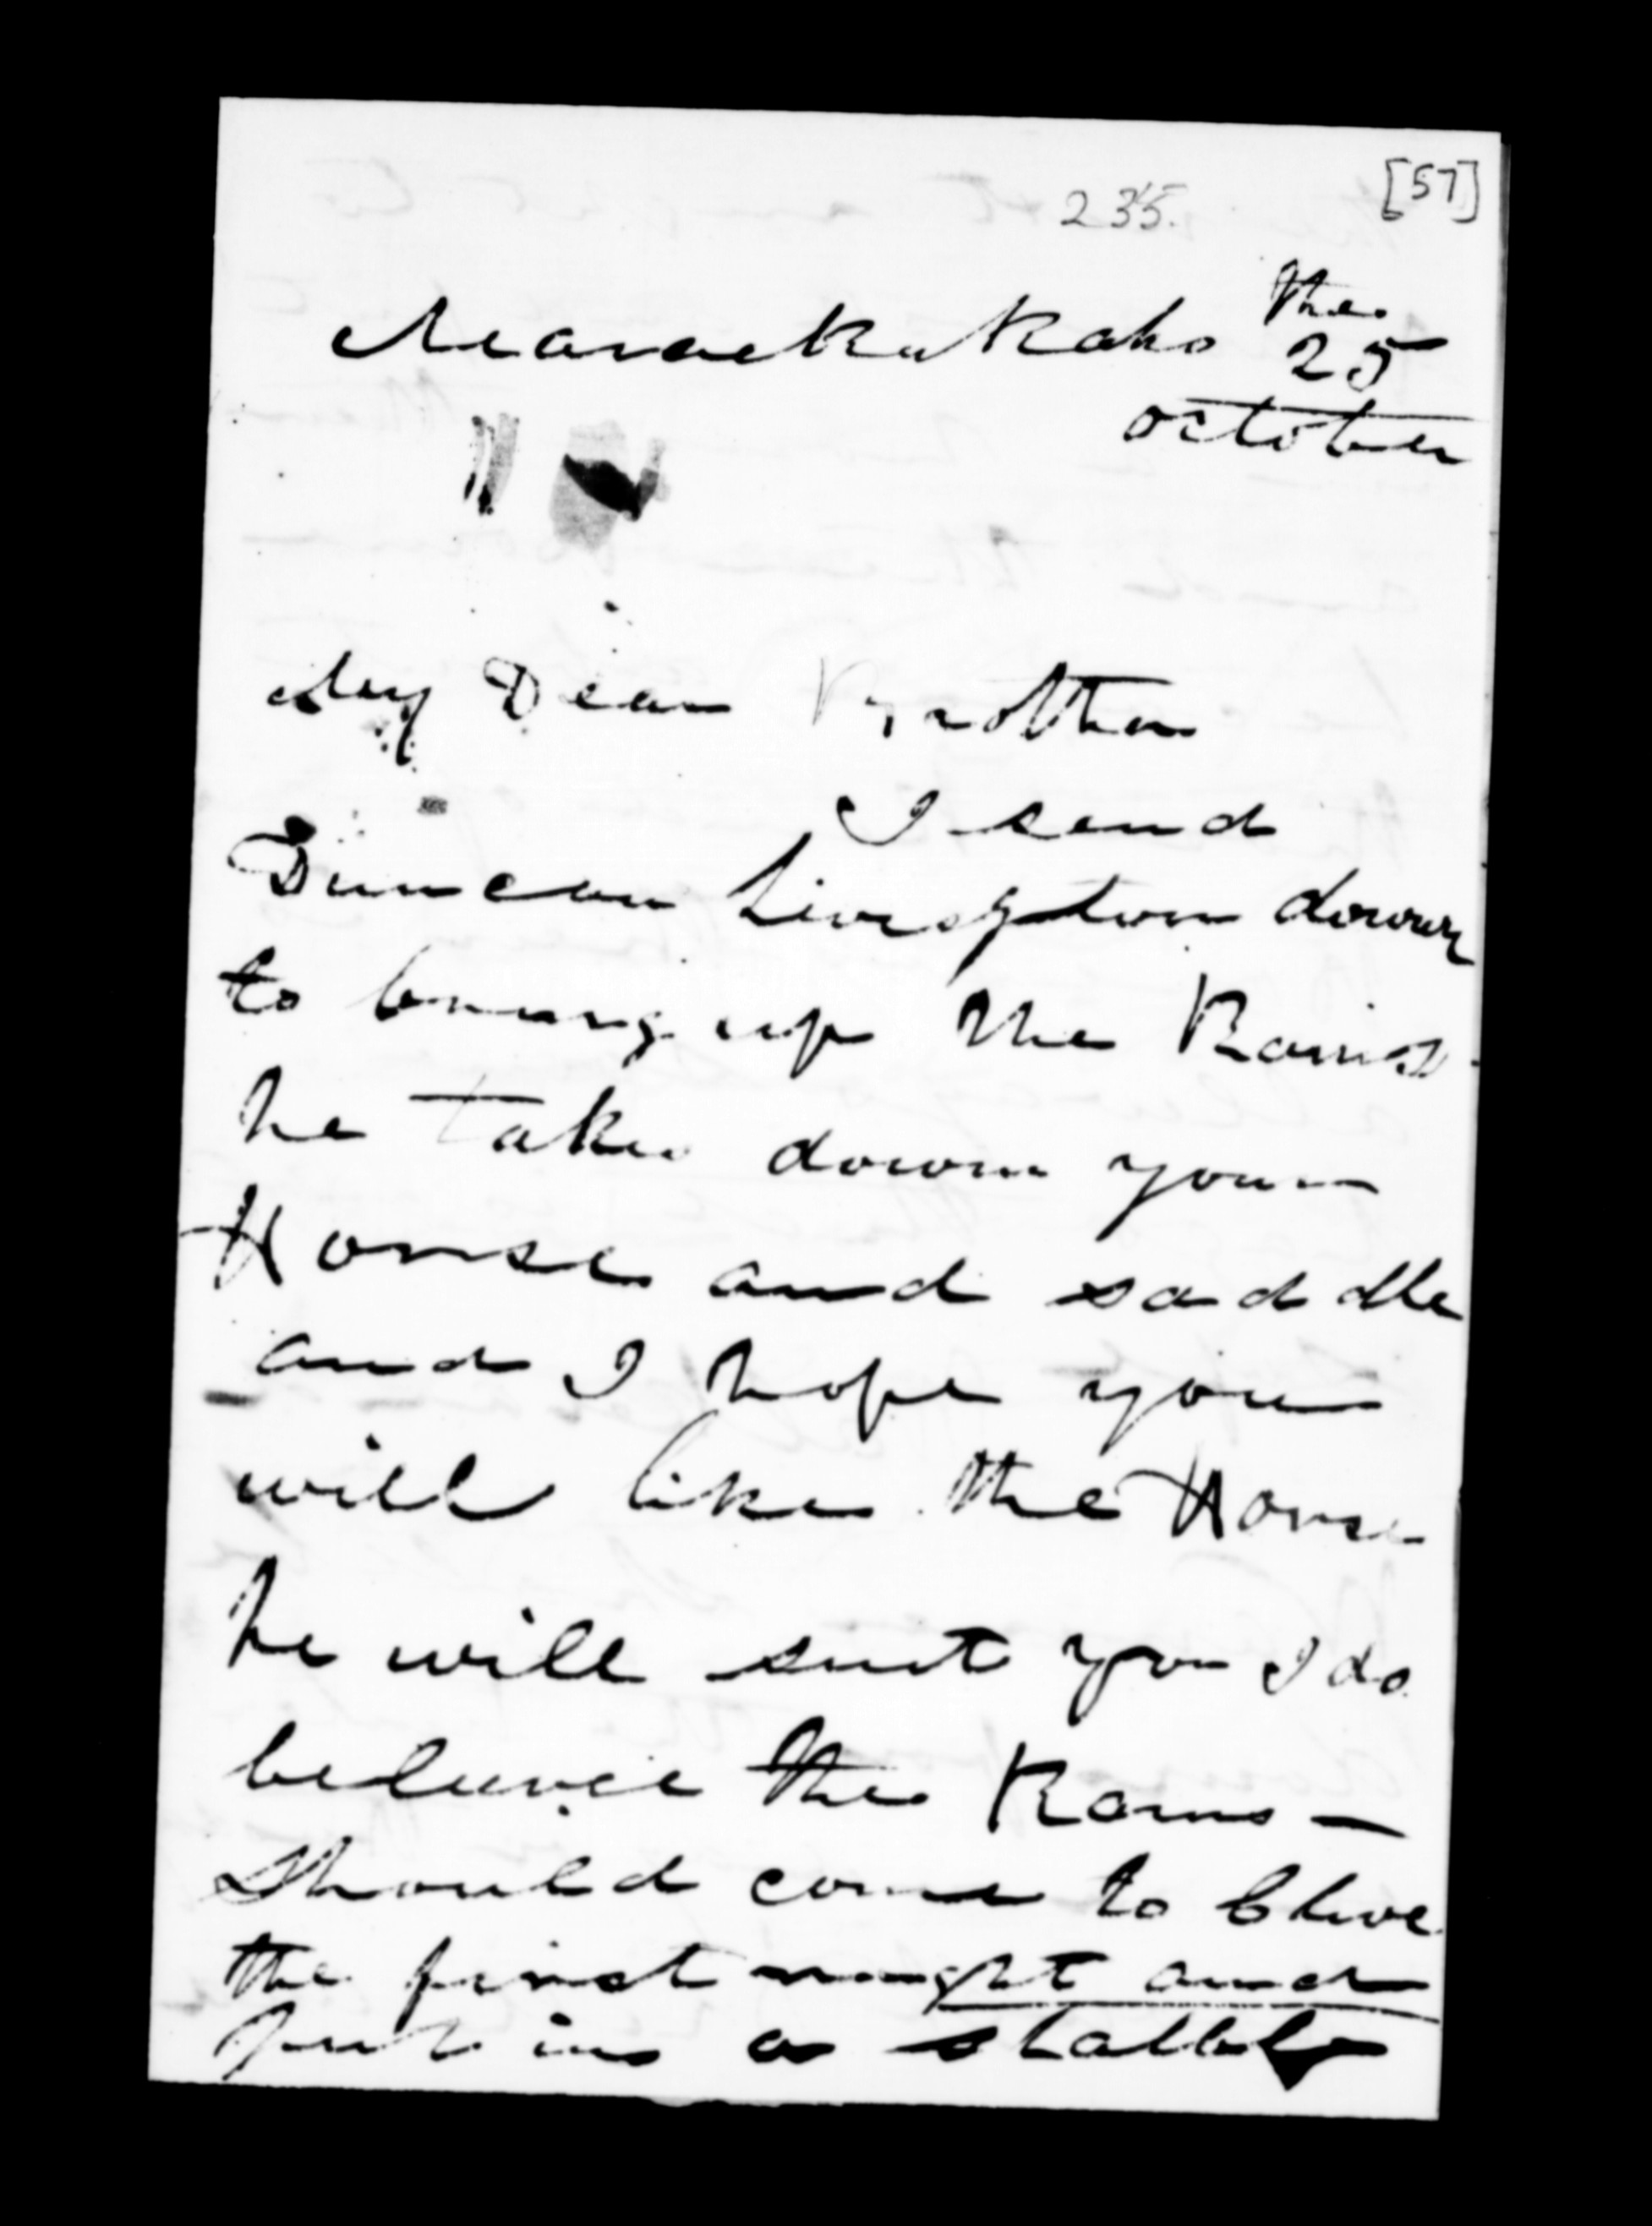 [57]
235.
Maraekakaho the
25
october
My Dear Brother
I send
Duncan Livingston down
to bring up the Rams
he takes down your
Horse and saddle
and I hope you
will like the Horse
he will suit you I do
beleive the Rams —
should come to Clive
the first night and
put in a stable